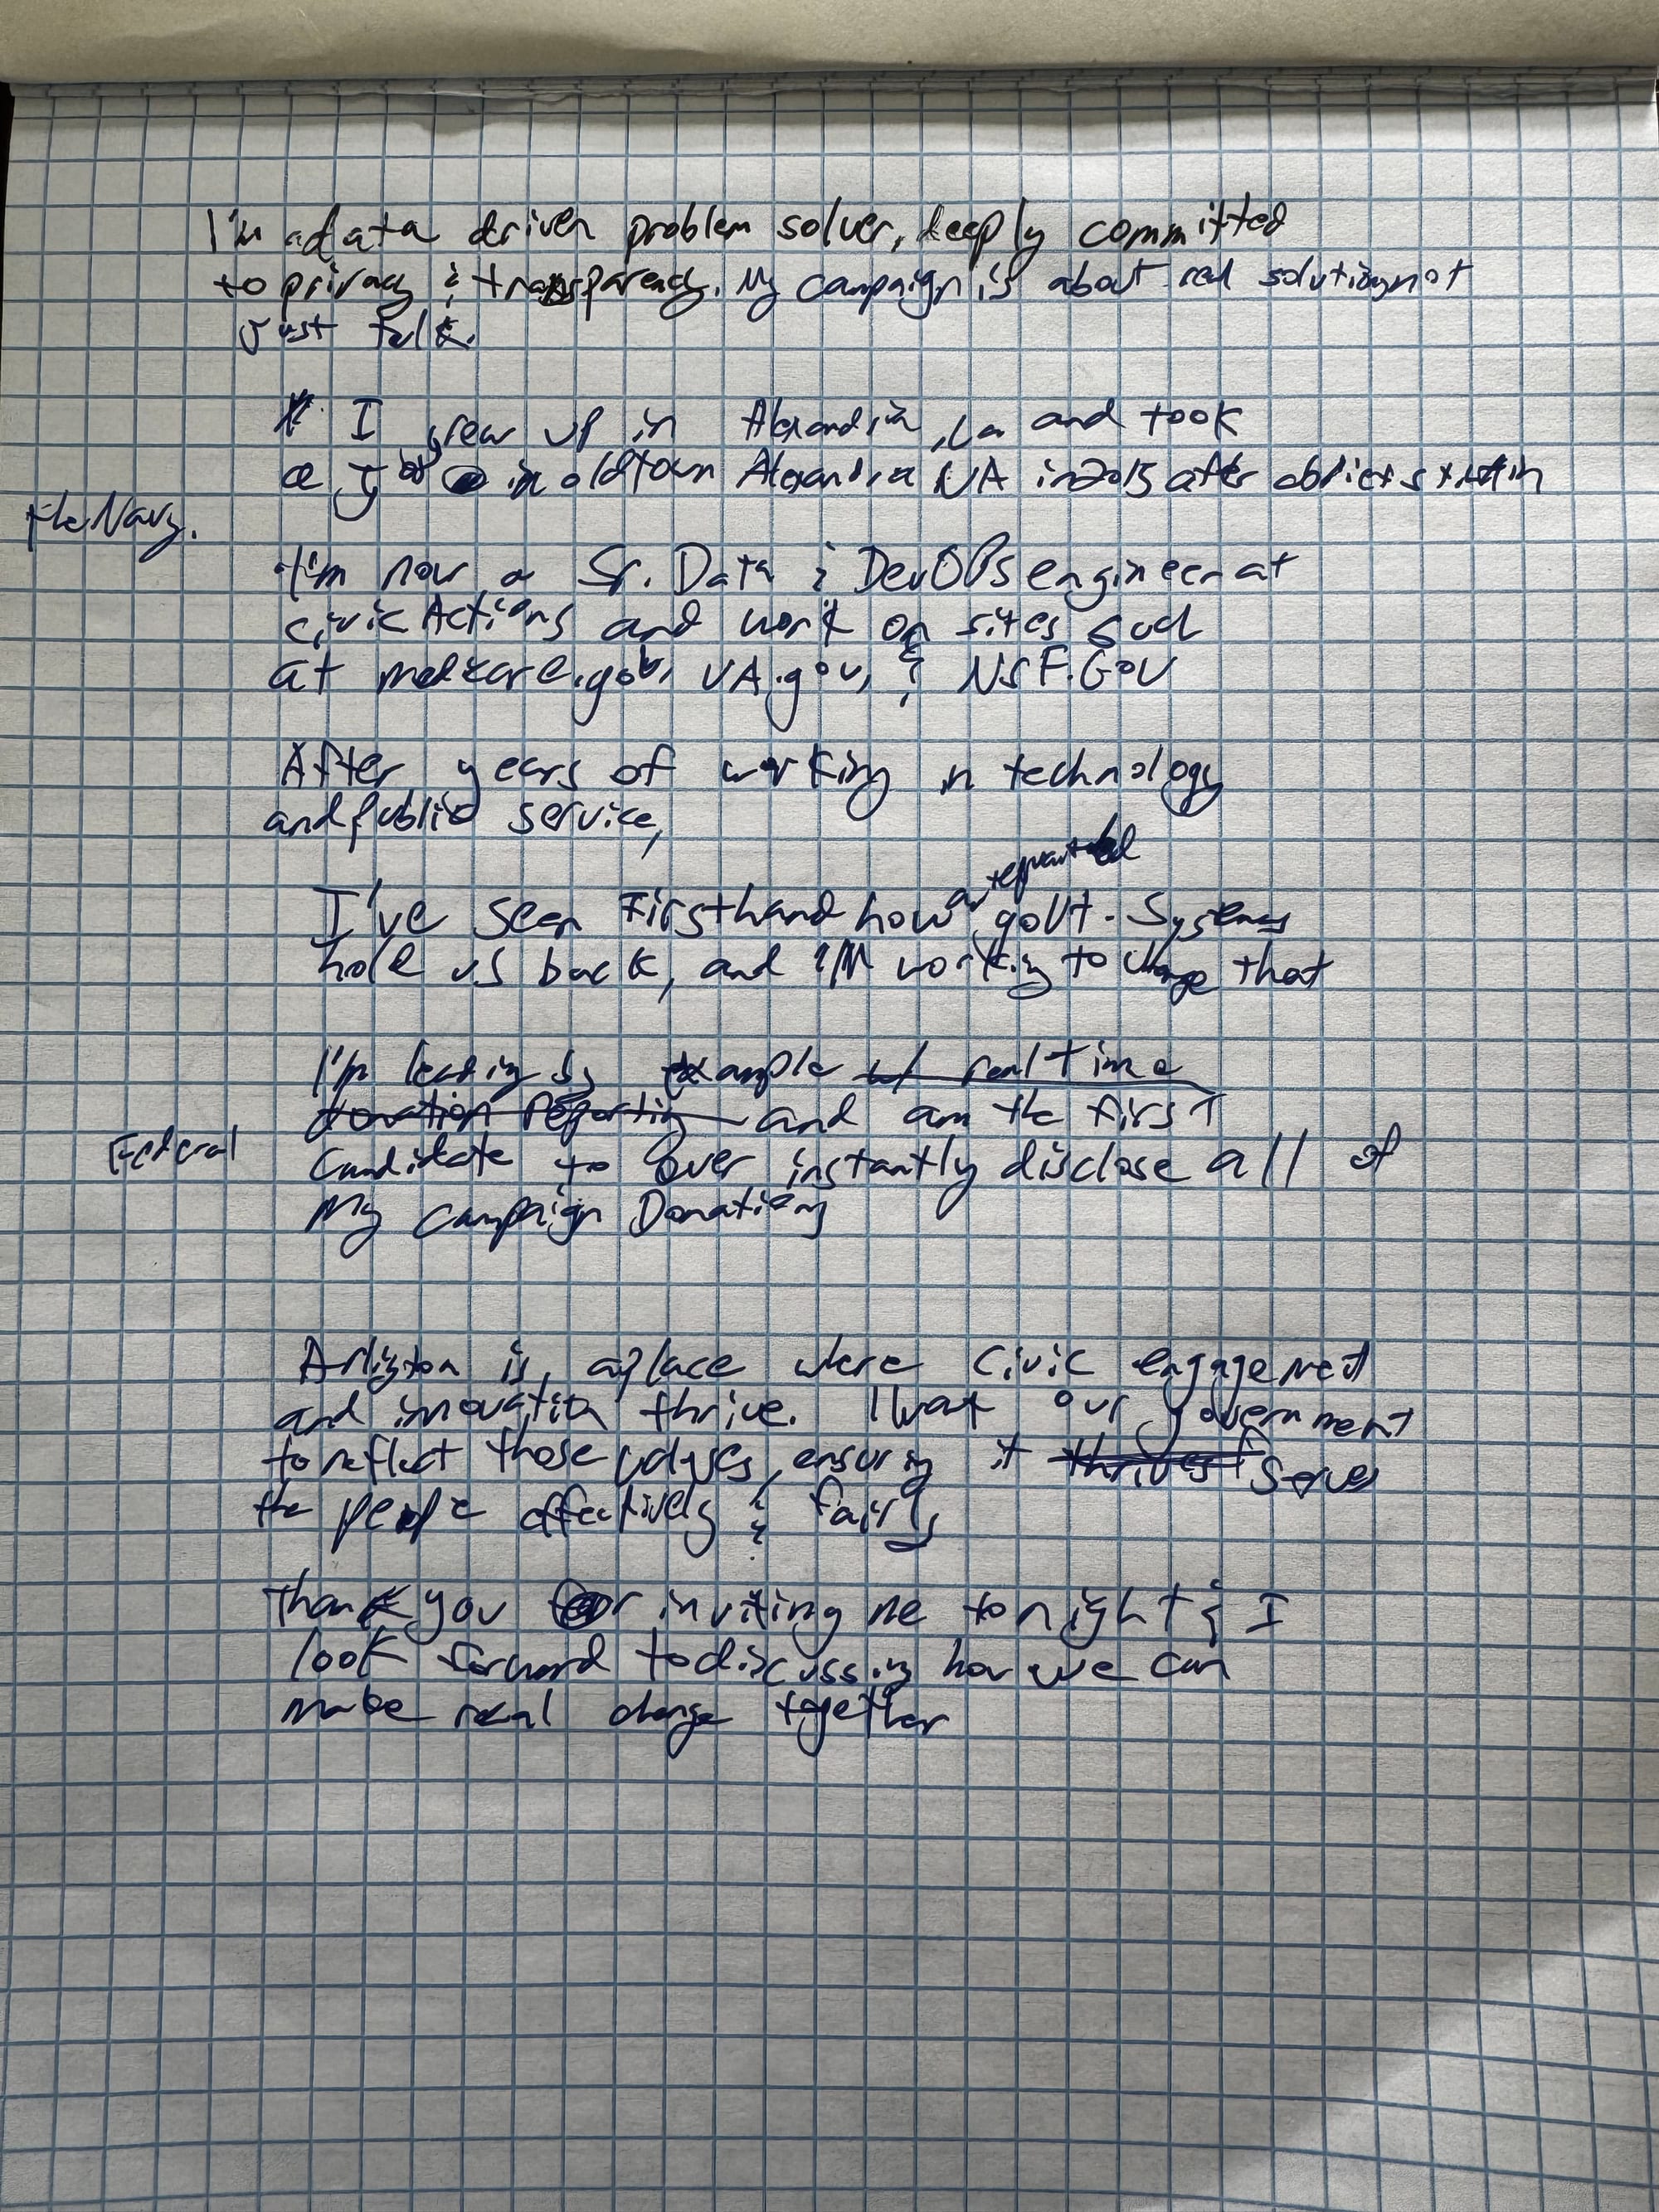 I'm a data driven problem solver, deeply committed
to privacy & transparency. My campaign is about real solutions not
Just talk.
* I grew up in Alexandria, La and took
a Job in oldtown Alexandria VA in 2015 after a brief stint in
the Navy.
I'm now a Sr. Data & DevOPS engineer at
civicActions and work on sites such
at medicare.gov, VA.gov, & NSF.GOV
After years of working in technology
and public service,
I've seen Firsthand how govt. Systems
hold us back, and I'M working to change that
I'm leading by example w/ real time
donation reporting and am the first
Federal Candidate to ever instantly disclose all of
My campaign Donations
Arlington is a place where civic engagement
and innovation thrive. I want our government
to reflect those values, ensuring it thrives serves
the people effectively & fairly
Thank you for inviting me tonight & I
look forward to discussing how we can
make real change together